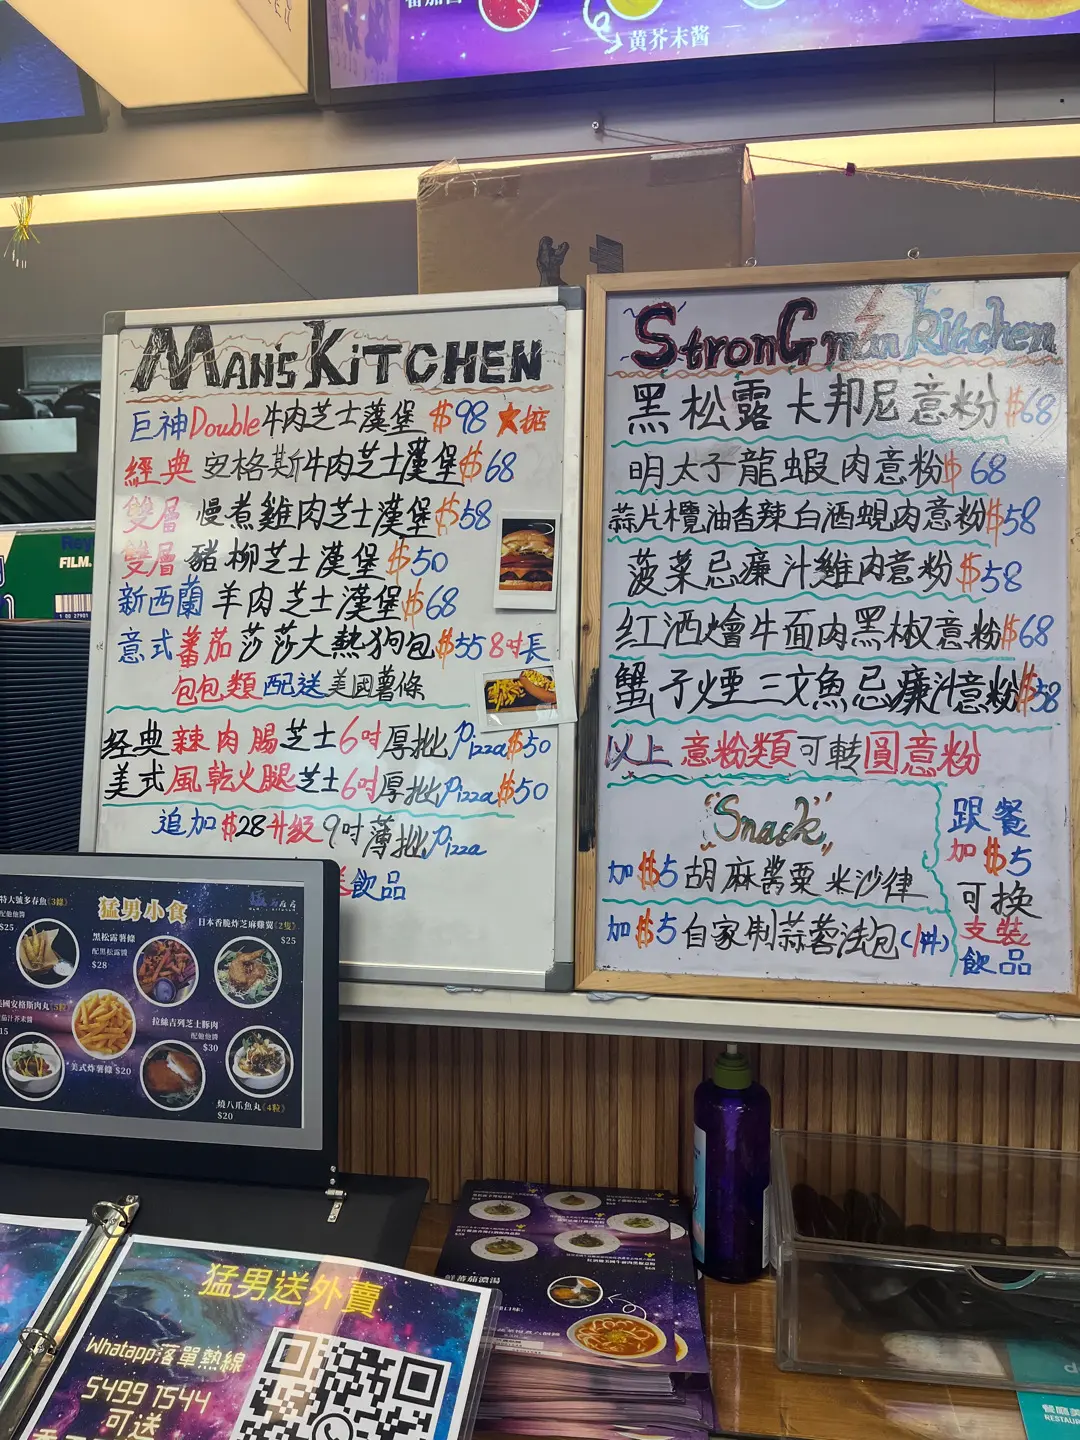 黄芥末酱
MAN'S KiTCHEN
巨神Double牛肉芝士漢堡 $98 ★掂
經典 安格斯牛肉芝士漢堡$68
雙層 慢煮雞肉芝士漢堡$58
雙層 豬柳芝士漢堡$50
新西蘭 羊肉芝士漢堡$68
意式蕃茄莎莎大熱狗包$55 8吋長
包包類配送美國薯條
经典辣肉腸芝士6吋厚批Pizza$50
美式風乾火腿芝士6吋厚批Pizza$50
追加$28升級9吋薄批Pizza
飲品
StronGman Kitchen
黑松露卡邦尼意粉$68
明太子龍蝦肉意粉$68
蒜片欖油香辣白酒蜆肉意粉$58
菠菜忌廉汁雞肉意粉$58
红酒燴牛面肉黑椒意粉$68
蟹子煙三文魚忌廉汁意粉$58
以上意粉類可轉圓意粉
"Snack"
加$5胡麻醬粟米沙律
加$5自家制蒜蓉法包(1件)
跟餐
加$5
可換
支裝
飲品
FILM.
猛男小食
特大號多春魚(3條)
配他他醬
$25
黑松露薯條
配黑松露醬
$28
日本香脆炸芝麻雞翼(2隻)
$25
國安格斯肉丸
茄汁芥末醬
15
美式炸薯條 $20
拉絲吉列芝士豚肉
配他他醬
$30
燒八爪魚丸(4粒)
$20
猛男送外賣
Whatapp落單熱線
5499 1544
可送
鮮蕃茄濃湯
餐廳美
RESTAU